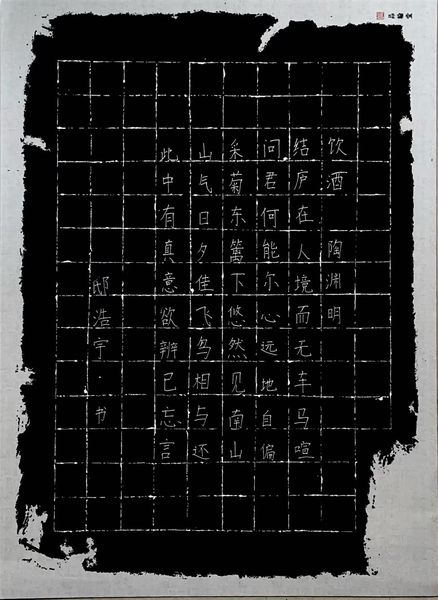 饮酒 陶渊明
结庐在人境而无车马喧
问君何能尔心远地自偏
采菊东篱下悠然见南山
山气日夕佳飞鸟相与还
此中有真意欲辨已忘言
邸浩宇·书